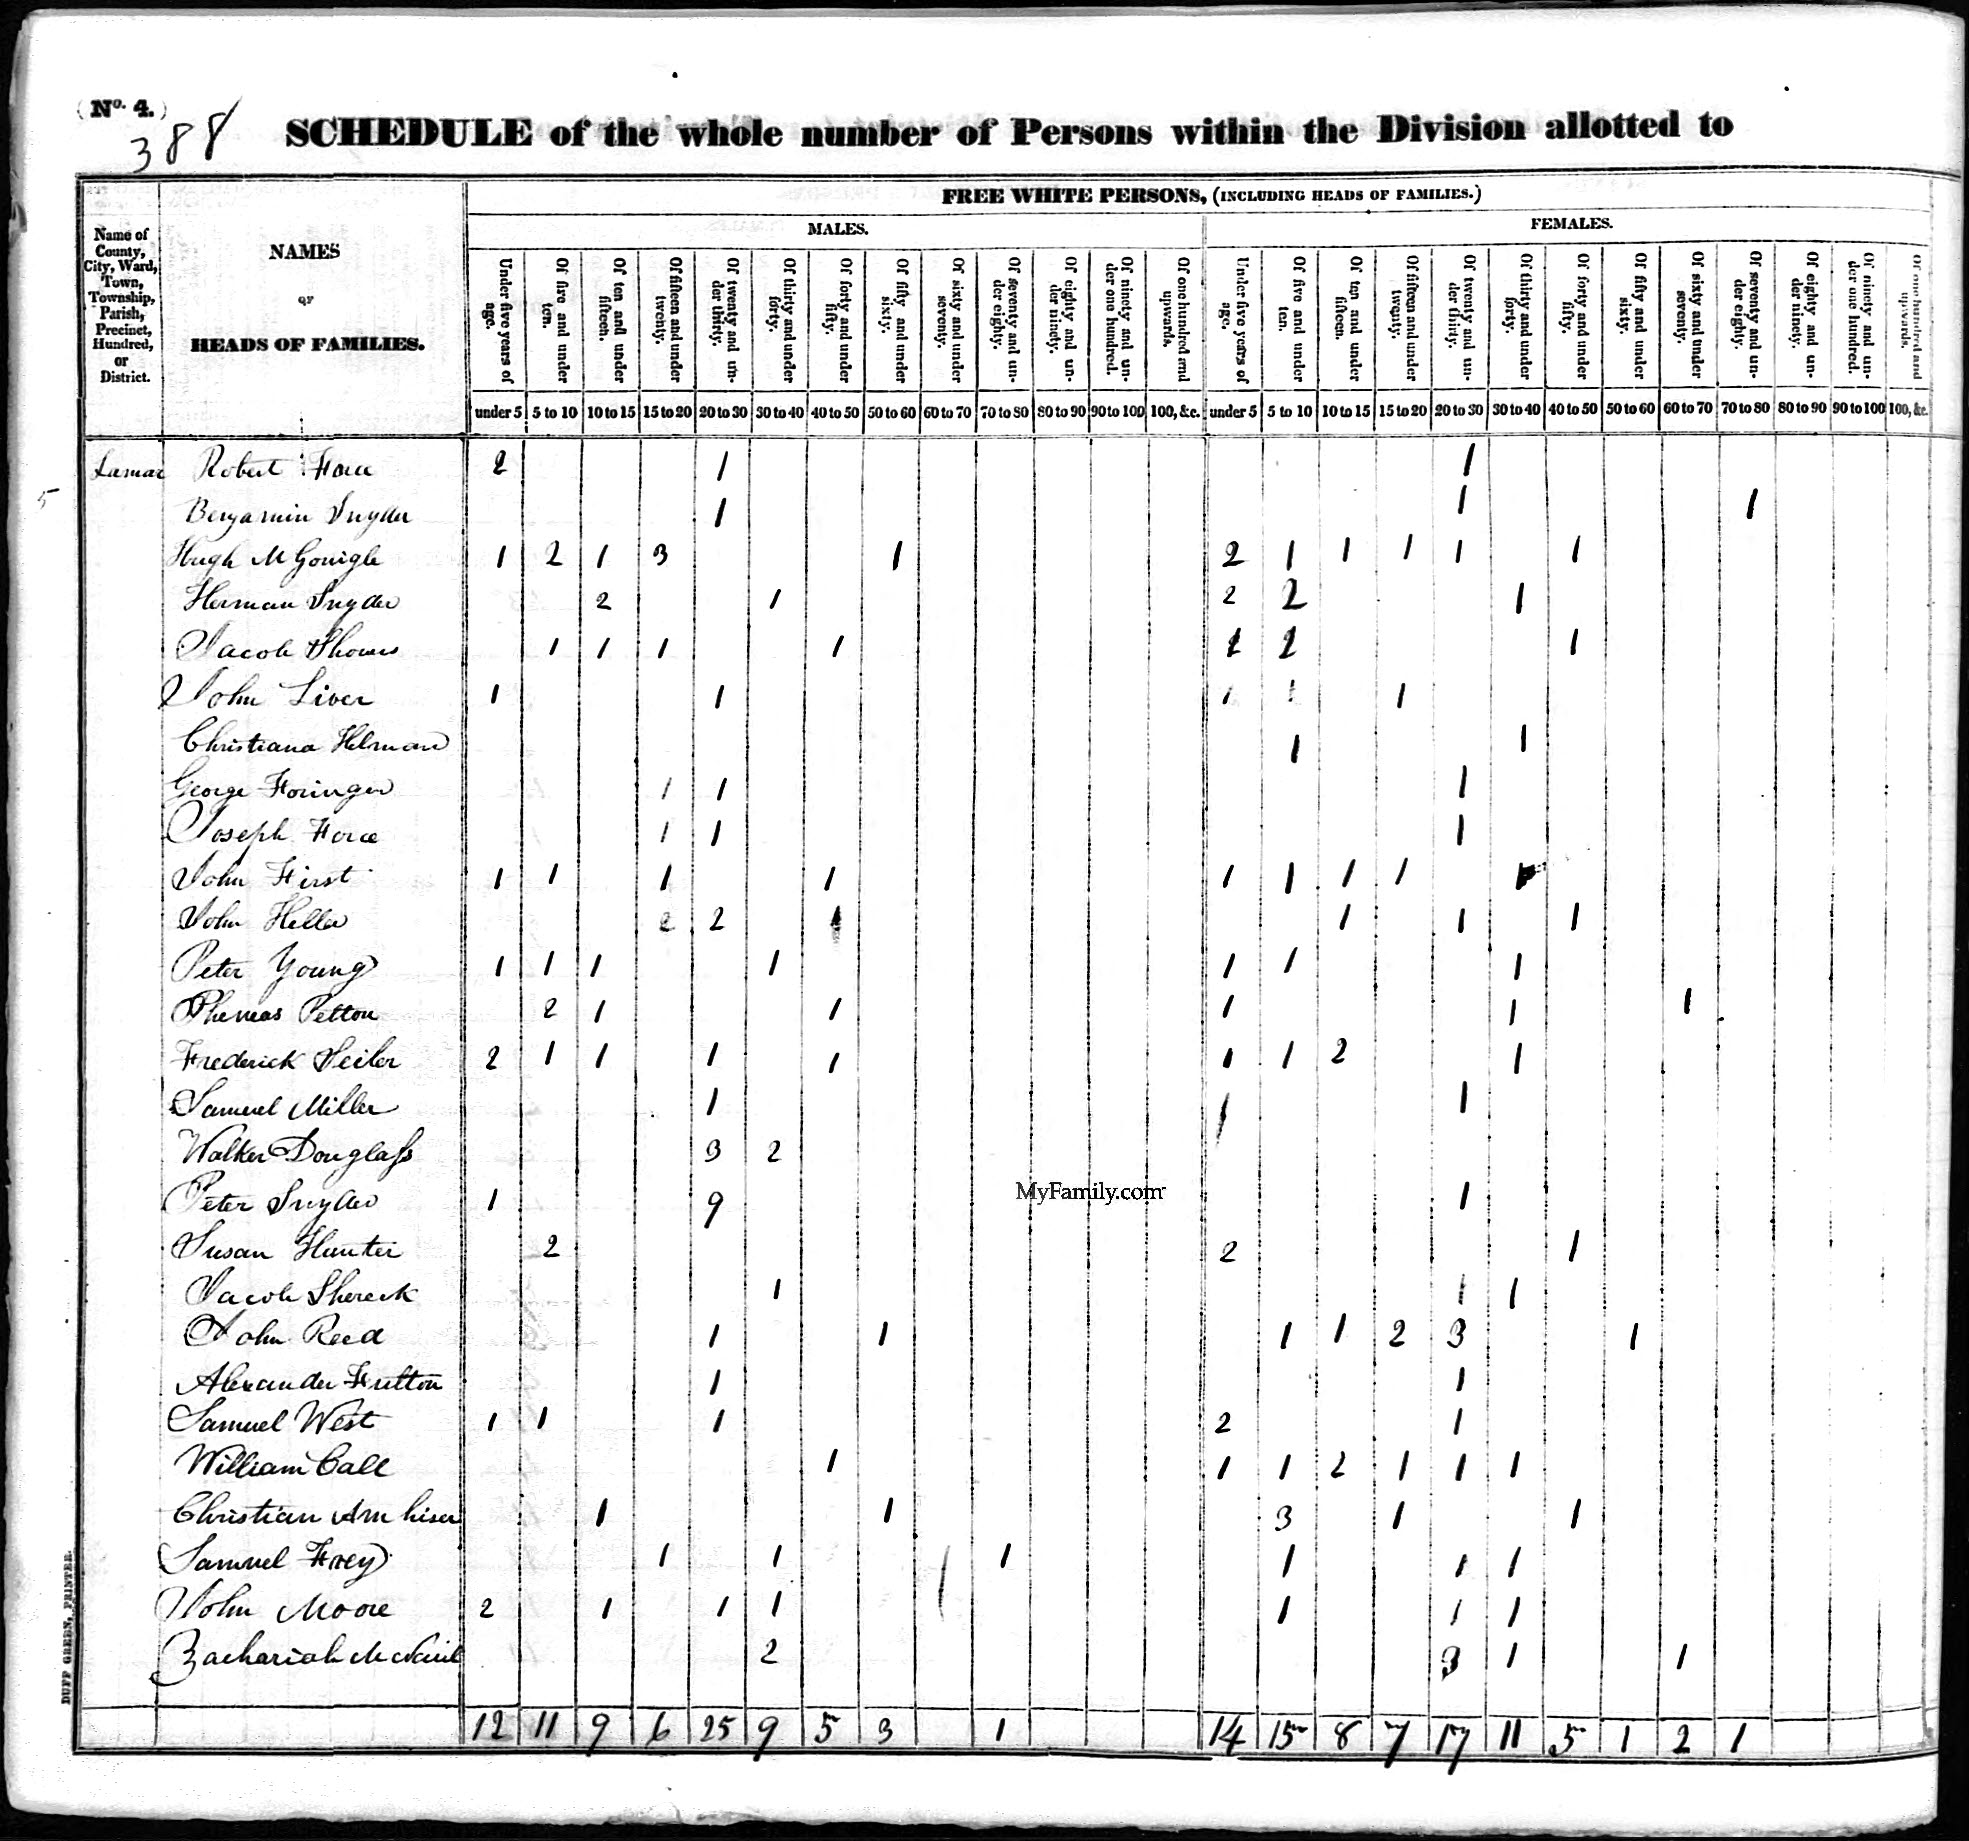 (No. 4.)
388
SCHEDULE of the whole number of Persons within the Division allotted to
FREE WHITE PERSONS, (INCLUDING HEADS OF FAMILIES.)
MALES. FEMALES.
Name of County, City, Ward, Town, Township, Parish, Precinct, Hundred, or District.
NAMES OF HEADS OF FAMILIES.
Under five years of age. Of five and under ten. Of ten and under fifteen. Of fifteen and under twenty. Of twenty and under thirty. Of thirty and under forty. Of forty and under fifty. Of fifty and under sixty. Of sixty and under seventy. Of seventy and under eighty. Of eighty and under ninety. Of ninety and under one hundred. Of one hundred and upwards. Under five years of age. Of five and under ten. Of ten and under fifteen. Of fifteen and under twenty. Of twenty and under thirty. Of thirty and under forty. Of forty and under fifty. Of fifty and under sixty. Of sixty and under seventy. Of seventy and under eighty. Of eighty and under ninety. Of ninety and under one hundred. Of one hundred and upwards.
under 5 5 to 10 10 to 15 15 to 20 20 to 30 30 to 40 40 to 50 50 to 60 60 to 70 70 to 80 80 to 90 90 to 100 100, &c. under 5 5 to 10 10 to 15 15 to 20 20 to 30 30 to 40 40 to 50 50 to 60 60 to 70 70 to 80 80 to 90 90 to 100 100, &c.
Lamar Robert Force 2 1 1
5
Benjamin Snyder 1 1 1
Hugh McGonigle 1 2 1 3 1 2 1 1 1 1 1
Herman Snyder 2 1 2 2 1
Jacob Showers 1 1 1 1 1
John Liver 1 1 1 1 1
Christiana Helman 1 1
George Foringer 1 1 1
Joseph Force 1 1 1
John First 1 1 1 1 1 1 1 1 1
John Heller 2 2 1 1 1 1
Peter Young 1 1 1 1 1 1 1
Pheneas Petton 2 1 1 1 1 1
Frederick Seiler 2 1 1 1 1 1 1 2 1
Samuel Miller 1 1 1
Walker Douglass 3 2
Peter Snyder 1 9 1
Susan Hunter 2 2 1
Jacob Shereck 1 1 1
John Reed 1 1 1 1 2 3 1
Alexander Fulton 1 1
Samuel West 1 1 1 2 1
William Call 1 1 1 2 1 1 1
Christian Amhiser 1 1 3 1 1
Samuel Frey 1 1 1 1 1 1
John Moore 2 1 1 1 1 1 1
Zachariah McNaul 2 3 1 1
12 11 9 6 25 9 5 3 1 14 15 8 7 17 11 5 1 2 1
MyFamily.com
DUFF GREEN, PRINTER.